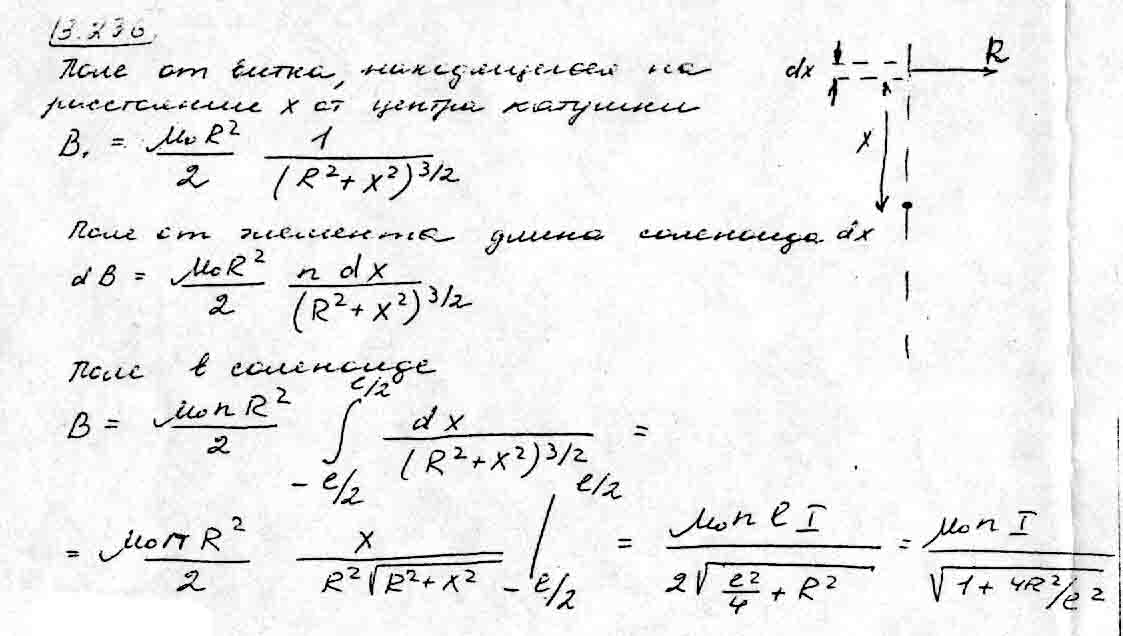 3.236.
Поле от витка, находящегося на
расстоянии x от центра катушки
B₁ = μ₀R²/2 · 1/(R²+x²)^3/2
Поле от элемента длина соленоида dx
dB = μ₀R²/2 · n dx/(R²+x²)^3/2
Поле в соленоиде
B = μ₀nR²/2 ∫_{-ℓ/2}^{ℓ/2} dx/(R²+x²)^3/2 =
= μ₀nR²/2 · x/(R²√(R²+x²)) |_{-ℓ/2}^{ℓ/2} = μ₀nℓI/(2√(ℓ²/4 + R²)) = μ₀nI/√(1+4R²/ℓ²)
dx
R
x